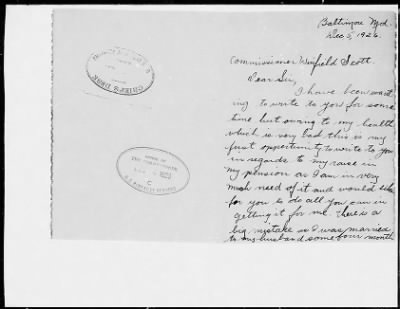 Baltimore Md.
Dec 5, 1926.
Commissioner Winfield Scott.
Dear Sir,
I have been want
ing to write to you for some
time but owing to my health
which is very bad this is my
first opportunity to write to you
in regards to my raise in
my pension as I am in very
much need of it and would like
for you to do all you can in
getting it for me. There is a
big mistake as I was married
to my husband some four month
CHIEF'S DESK
OFFICE OF
C